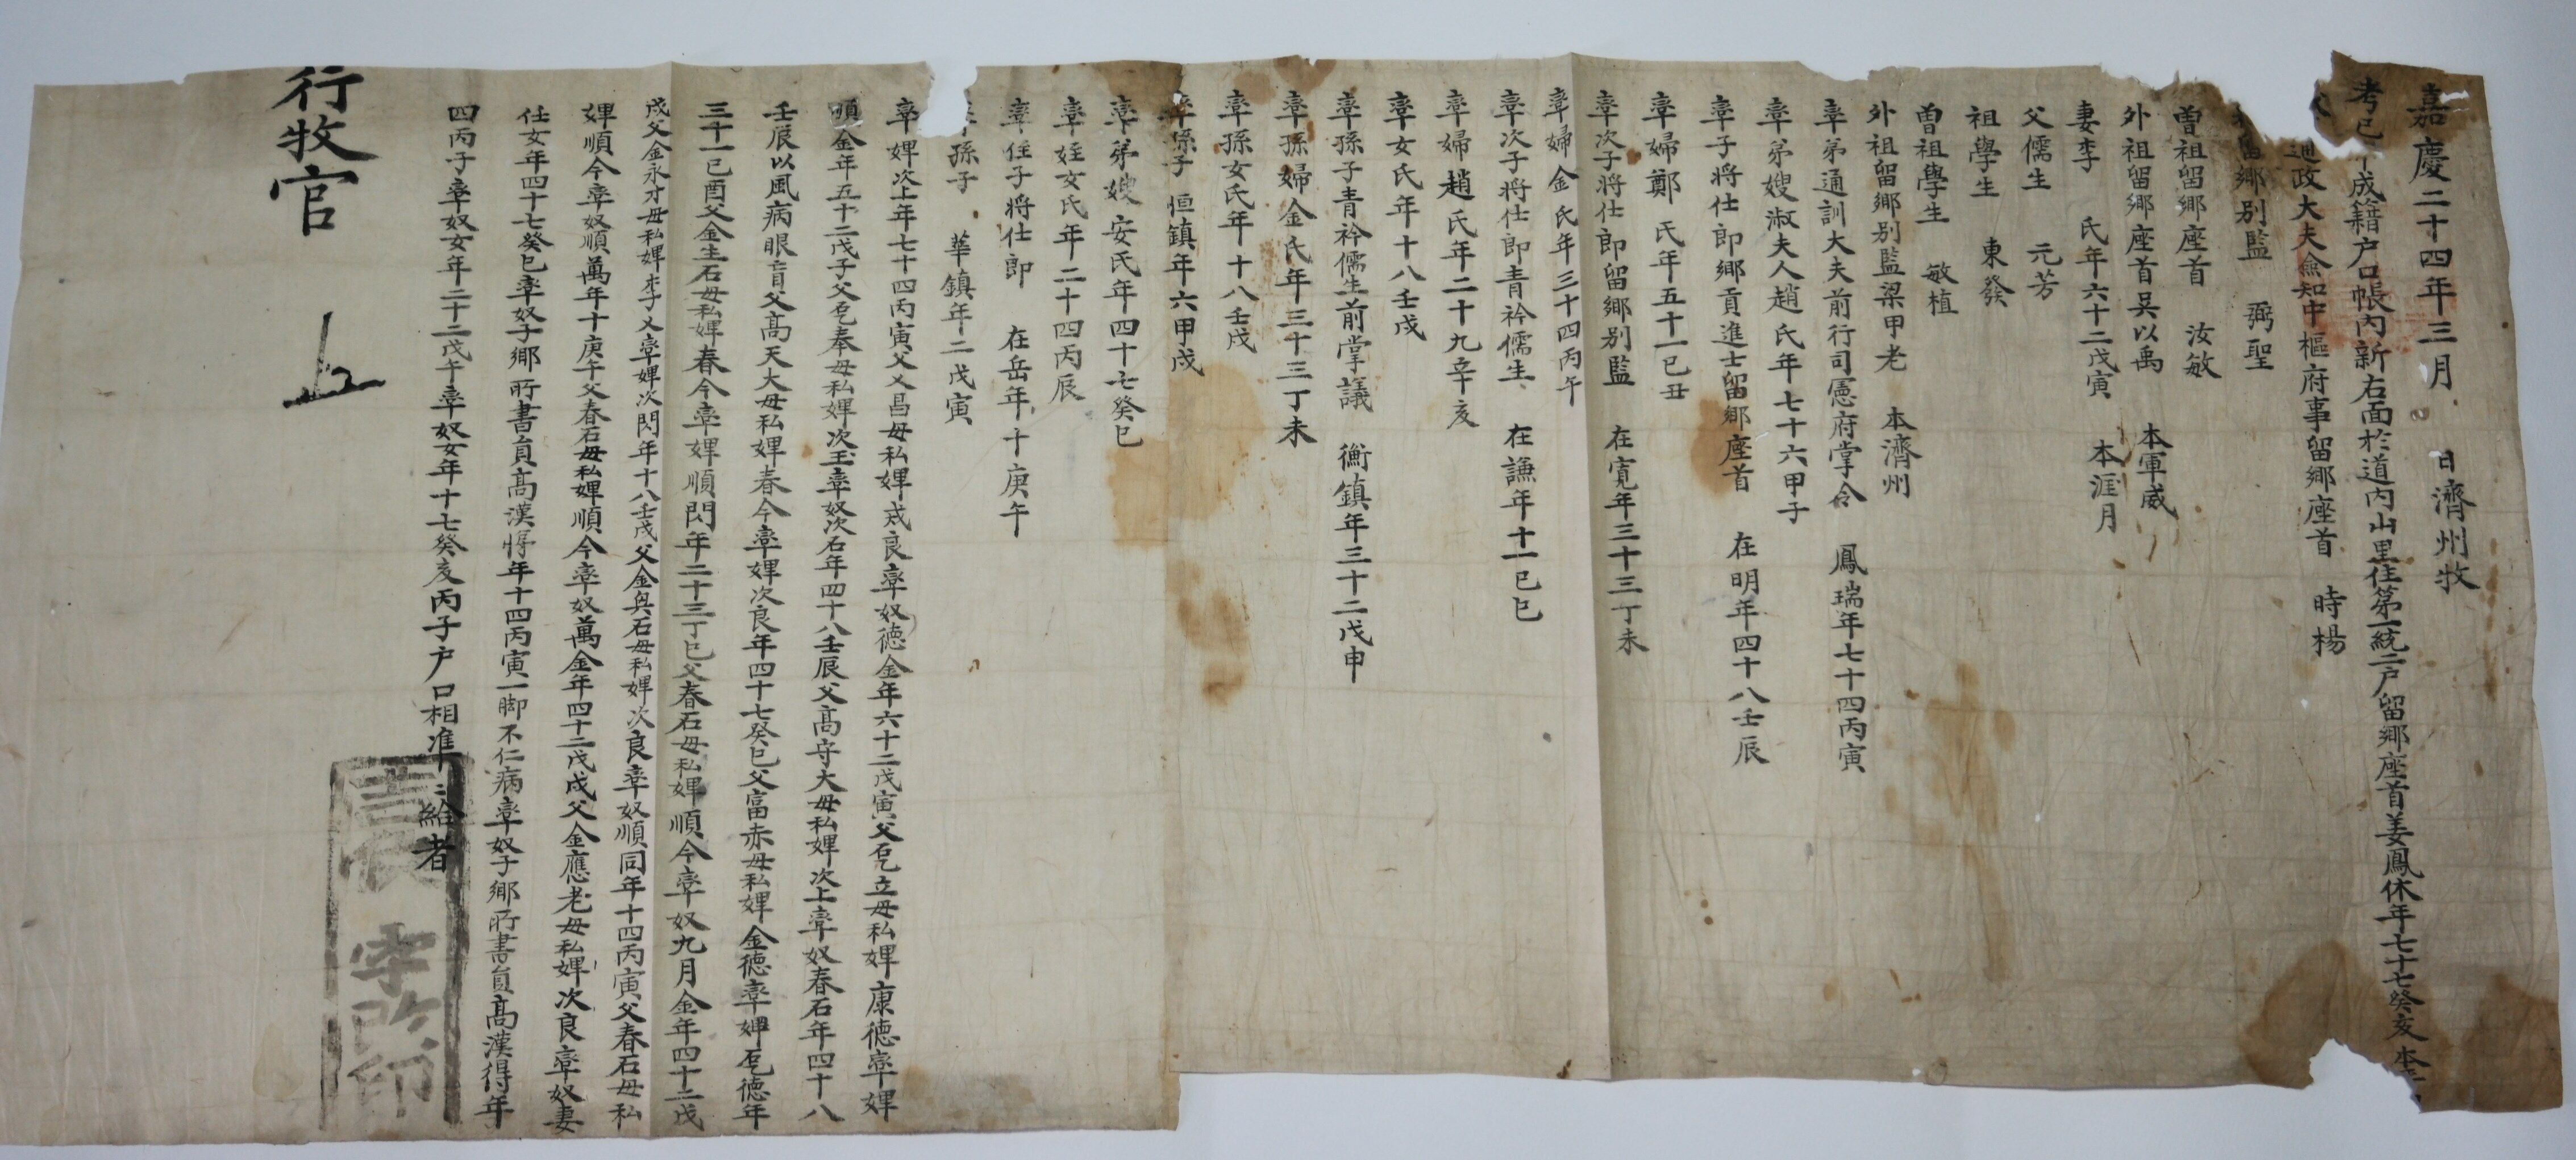 嘉慶二十四年三月 日濟州牧
考己卯成籍户口帳內新右面於道內山里住第一統二户留鄉座首姜鳳休年七十七癸亥本
通政大夫僉知中樞府事留鄉座首 時楊
留鄉別監 弼聖
曽祖留鄉座首 汝敏
外祖留鄉座首吳以禹 本軍威
妻李 氏年六十二戊寅 本涯月
父儒生 元芳
祖學生 東發
曽祖學生 敏植
外祖留鄉別監梁甲老 本濟州
率弟通訓大夫前行司憲府掌令 鳳瑞年七十四丙寅
率弟嫂淑夫人趙氏年七十六甲子
率子將仕郎鄉貢進士留鄉座首 在明年四十八壬辰
率婦鄭 氏年五十一己丑
率次子將仕郎留鄉別監 在寬年三十三丁未
率婦金氏年三十四丙午
率次子將仕郎青衿儒生 在謙年十一己巳
率婦趙氏年二十九辛亥
率女氏年十八壬戌
率孫子青衿儒生前掌議 衡鎮年三十二戊申
率孫婦金氏年三十三丁未
率孫女氏年十八壬戌
率孫子 恒鎮年六甲戌
率弟嫂安氏年四十七癸巳
率姪女氏年二十四丙辰
率侄子將仕郎 在岳年十庚午
孫子 華鎮年二戊寅
率婢次上年七十四丙寅父㐅昌母私婢戎良率奴德金年六十二戊寅父乭立母私婢康德率婢
順金年五十二戊子父乭奉母私婢次玉率奴次石年四十八壬辰父高守大母私婢次上率奴春石年四十八
壬辰以風病眼盲父高天大母私婢春今率婢次良年四十七癸巳父富赤母私婢金德率婢乭德年
三十一己酉父金生石母私婢春今率婢順閃年二十三丁巳父春石母私婢順今率奴九月金年四十二戊
戌父金永才母私婢李㐅率婢次閃年十八壬戌父金與石母私婢次良率奴順同年十四丙寅父春石母私
婢順今率奴順萬年十庚午父春石母私婢順今率奴萬金年四十二戊戌父金應老母私婢次良率奴妻
任女年四十七癸巳率奴子鄉所書員高漢得年十四丙寅一脚不仁病率奴子鄉所書員高漢得年
四丙子率奴女年二十二戊午率奴女年十七癸亥丙子户口相准ニ給者
行牧官